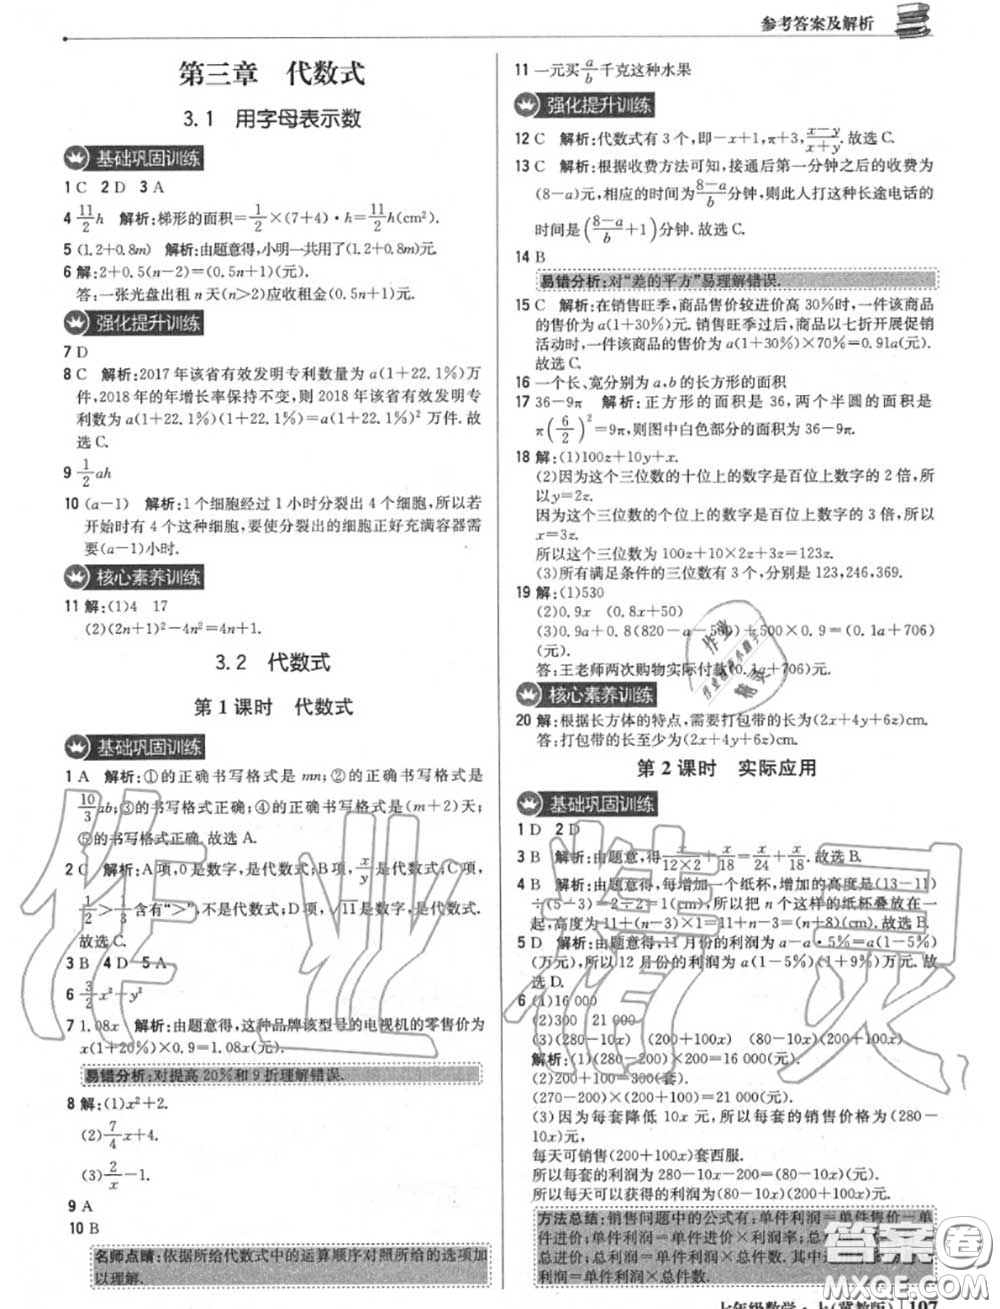 参考答案及解析
第三章 代数式
3.1 用字母表示数
基础巩固训练
1 C 2 D 3 A
4 11/2 h 解析:梯形的面积=1/2×(7+4)·h=11/2 h(cm²).
5 (1.2+0.8m) 解析:由题意得,小明一共用了(1.2+0.8m)元.
6 解:2+0.5(n-2)=(0.5n+1)(元).
答:一张光盘出租 n 天(n>2)应收租金(0.5n+1)元.
强化提升训练
7 D
8 C 解析:2017 年该省有效发明专利数量为 a(1+22.1%)万
件,2018 年的年增长率保持不变,则 2018 年该省有效发明专
利数为 a(1+22.1%)(1+22.1%)=a(1+22.1%)²万件.故
选 C.
9 1/2 ah
10 (a-1) 解析:1 个细胞经过 1 小时分裂出 4 个细胞,所以若
开始时有 4 个这种细胞,要使分裂出的细胞正好充满容器需
要(a-1)小时.
核心素养训练
11 解:(1)4 17
(2)(2n+1)²-4n²=4n+1.
3.2 代数式
第 1 课时 代数式
基础巩固训练
1 A 解析:①的正确书写格式是 mn;②的正确书写格式是
10/3 ab;③的书写格式正确;④的正确书写格式是(m+2)天;
⑤的书写格式正确.故选 A.
2 C 解析:A 项,0 是数字,是代数式;B 项,x/y 是代数式;C 项,
1/2>1/3 含有“>”,不是代数式;D 项,√11是数字,是代数式.
故选 C.
3 B 4 D 5 A
6 3/2 x²-y²
7 1.08x 解析:由题意得,这种品牌该型号的电视机的零售价为
x(1+20%)×0.9=1.08x(元).
易错分析:对提高 20%和 9 折理解错误.
8 解:(1)x²+2.
(2)7/4 x+4.
(3)2/x-1.
9 A
10 B
名师点睛:依据所给代数式中的运算顺序对照所给的选项加
以理解.
11 一元买 a/b 千克这种水果
强化提升训练
12 C 解析:代数式有 3 个,即-x+1,π+3,(x-y)/(x+y).故选 C.
13 C 解析:根据收费方法可知,接通后第一分钟之后的收费为
(8-a)元,相应的时间为(8-a)/b 分钟,则此人打这种长途电话的
时间是((8-a)/b+1)分钟.故选 C.
14 B
易错分析:对“差的平方”易理解错误.
15 C 解析:在销售旺季,商品售价较进价高 30%时,一件该商品
的售价为 a(1+30%)元.销售旺季过后,商品以七折开展促销
活动时,一件该商品的售价为 a(1+30%)×70%=0.91a(元).
故选 C.
16 一个长、宽分别为 a,b 的长方形的面积
17 36-9π 解析:正方形的面积是 36,两个半圆的面积是
π(6/2)²=9π,则图中白色部分的面积为 36-9π.
18 解:(1)100z+10y+x.
(2)因为这个三位数的十位上的数字是百位上数字的 2 倍,所
以 y=2z.
因为这个三位数的个位上的数字是百位上数字的 3 倍,所以
x=3z.
所以这个三位数为 100z+10×2z+3z=123z.
(3)所有满足条件的三位数有 3 个,分别是 123,246,369.
19 解:(1)530
(2)0.9x (0.8x+50)
(3)0.9a+0.8(820-a-500)+500×0.9=(0.1a+706)
元.
答:王老师两次购物实际付款(0.1a+706)元.
核心素养训练
20 解:根据长方体的特点,需要打包带的长为(2x+4y+6z)cm.
答:打包带的长至少为(2x+4y+6z)cm.
第 2 课时 实际应用
基础巩固训练
1 D 2 D
3 B 解析:由题意,得 x/(12×2)+x/18=x/24+x/18.故选 B.
4 B 解析:由题意得,每增加一个纸杯,增加的高度是(13-11)
÷(5-3)=2÷2=1(cm),所以把 n 个这样的纸杯叠放在一
起,高度为 11+(n-3)×1=11+n-3=(n+8)(cm).故选 B.
5 D 解析:由题意得,11 月份的利润为 a-a·5%=a(1-5%)
(万元),所以 12 月份的利润为 a(1-5%)(1+9%)万元.故
选 D.
6 (1)16 000
(2)300 21 000
(3)(280-10x) (200+100x) (80-10x)(200+100x)
解析:(1)(280-200)×200=16 000(元).
(2)200+100=300(套).
(270-200)×(200+100)=21 000(元).
(3)因为每套降低 10x 元,所以每套的销售价格为(280-
10x)元,
每天可销售(200+100x)套西服.
所以每套的利润为 280-10x-200=(80-10x)元,
所以每天可以获得的利润为(80-10x)(200+100x)元.
方法总结:销售问题中的公式有:单件利润=单件售价-单
件进价;单件利润=单件进价×利润率;总利润=总售价-
总进价;总利润=单件利润×总件数.
答案圈
MXQE.COM
七年级数学·上(冀教版) 107
作业精灵